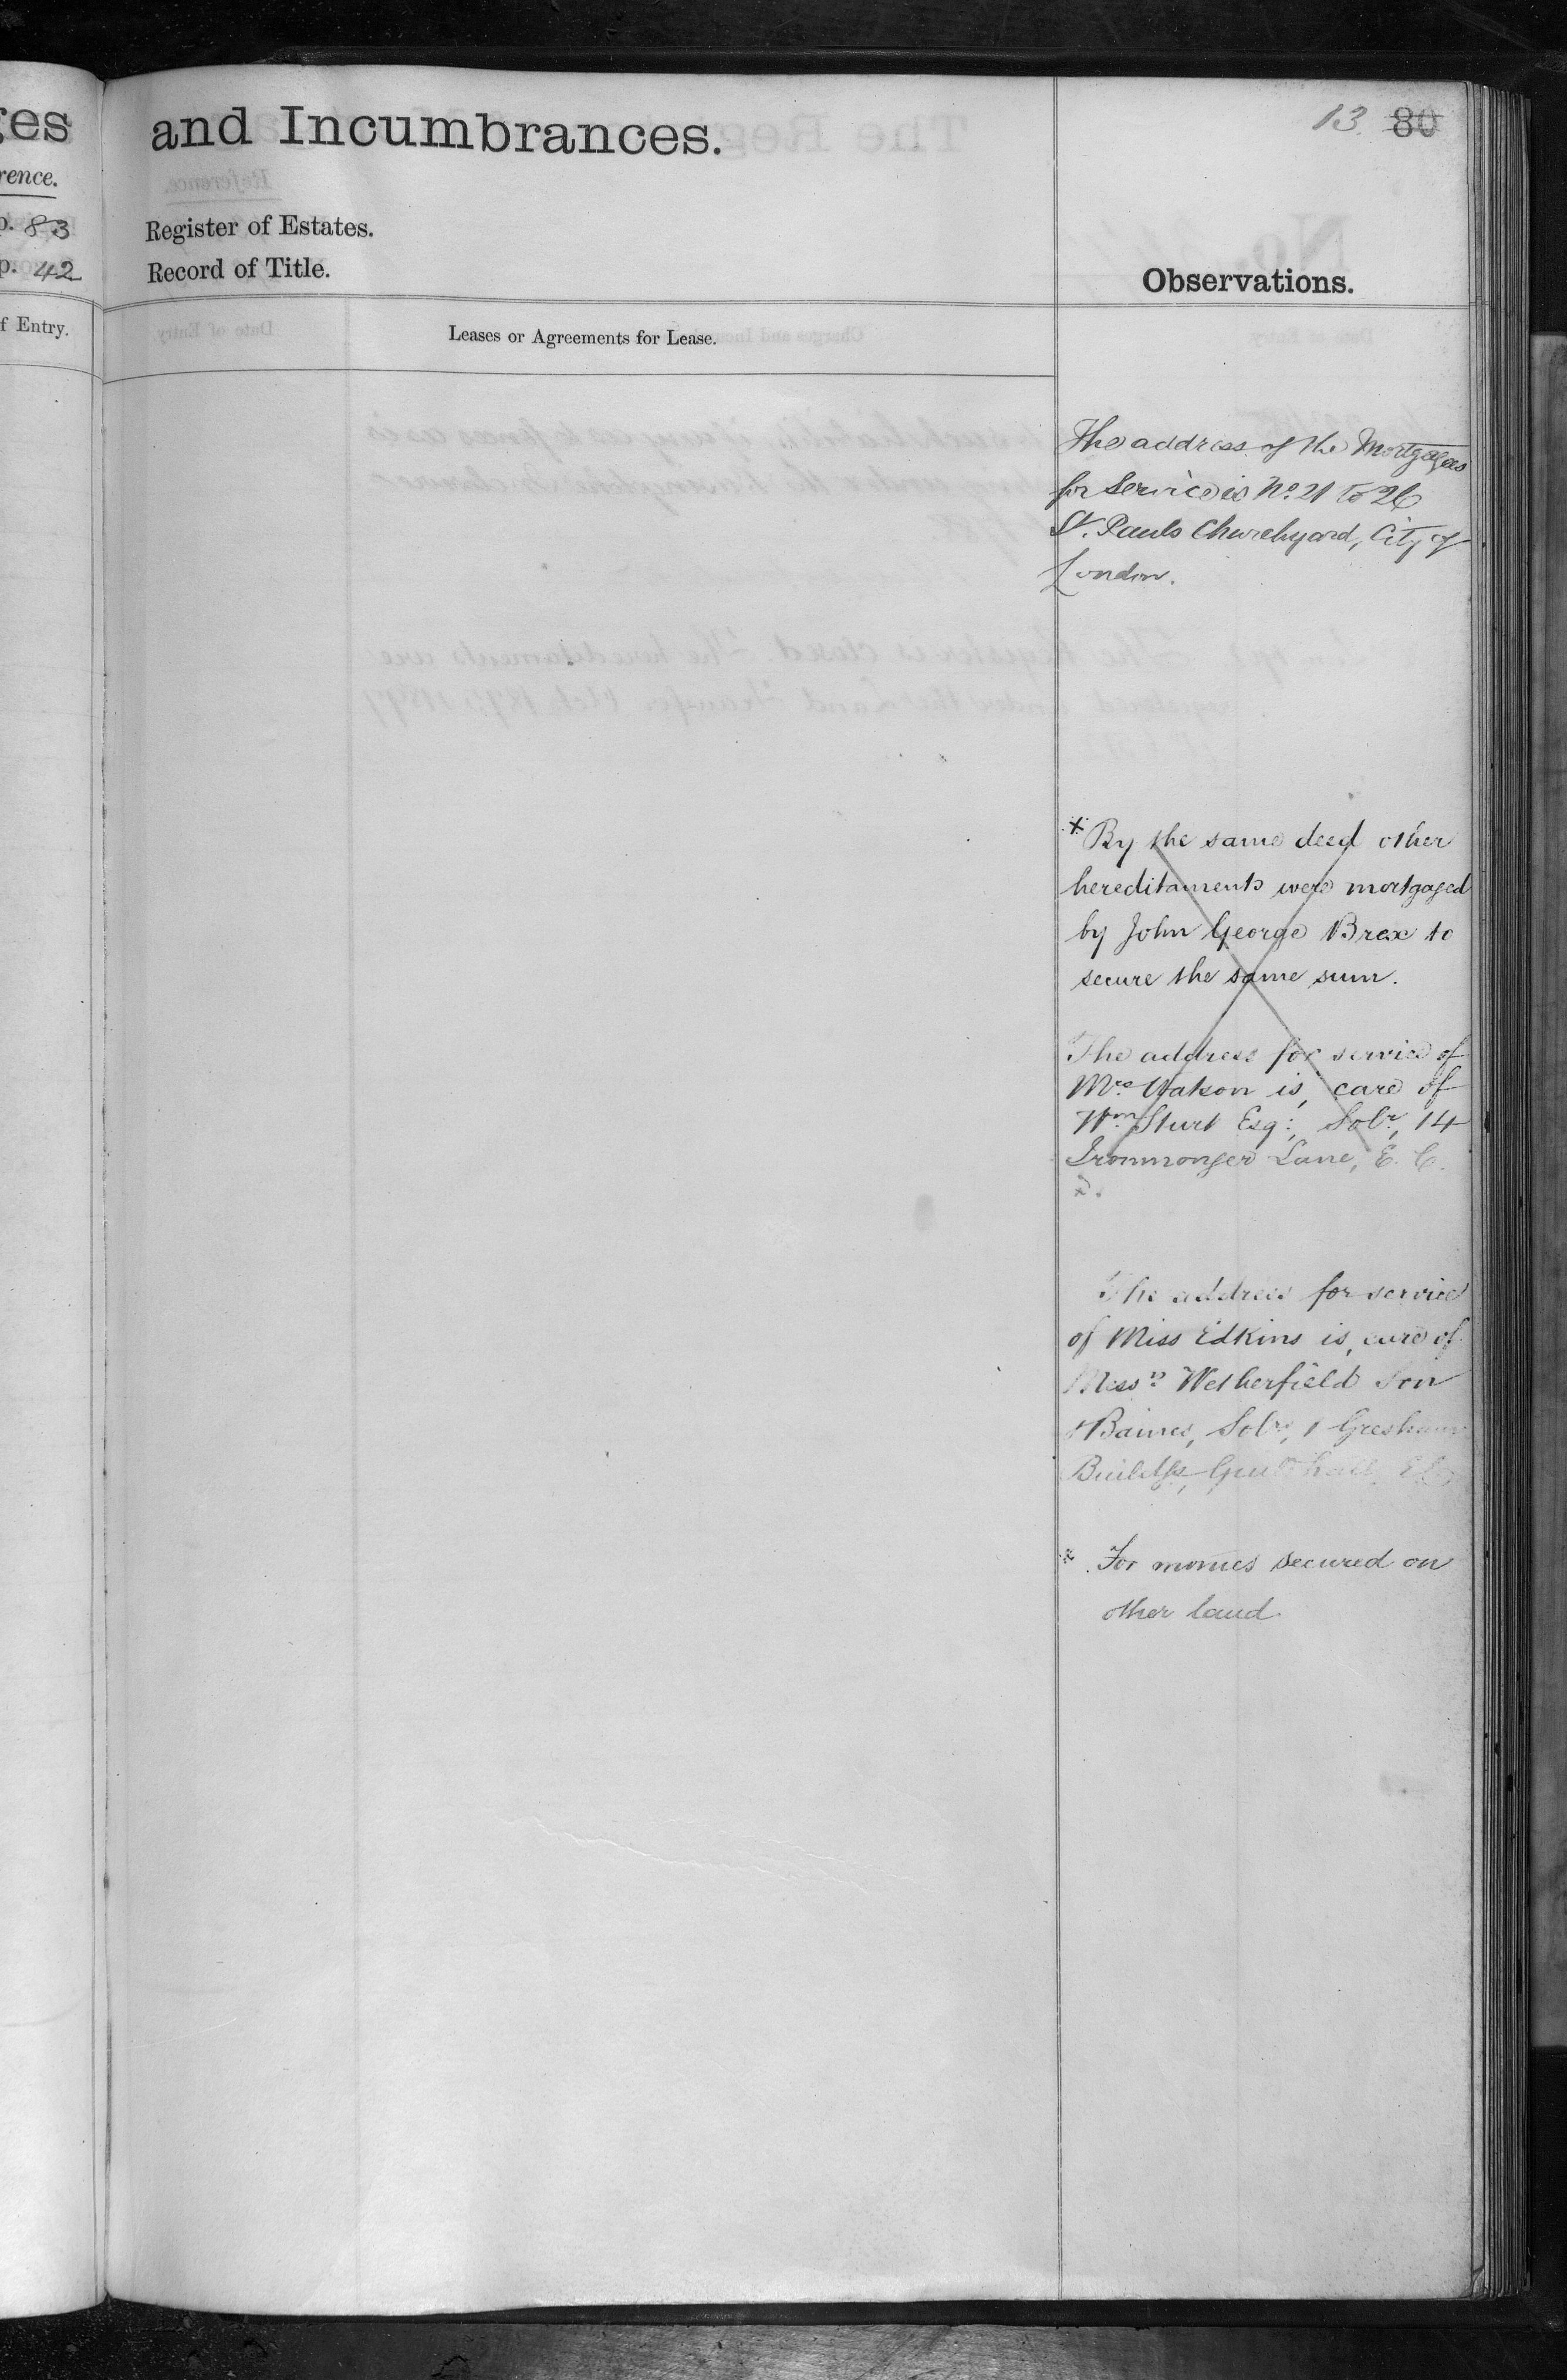 ges
rence.
p. 83
p. 42
f Entry.
and Incumbrances.
Register of Estates.
Record of Title.
Leases or Agreements for Lease.
13. 80
Observations.
The address of the Mortgagees
for Service is No. 21 to 26
St. Pauls Churchyard, City of
London.
* By the same deed other
hereditaments were mortgaged
by John George Brex to
secure the same sum.
The address for service of
Mrs Watson is, care of
Wm Sturt Esq:, Solr, 14
Ironmonger Lane, E. C.
The address for service
of Miss Edkins is, care of
Messrs Wetherfield Son
& Baines, Solrs, 1 Gresham
Buildgs, Guildhall, E C
* For monies secured on
other land.